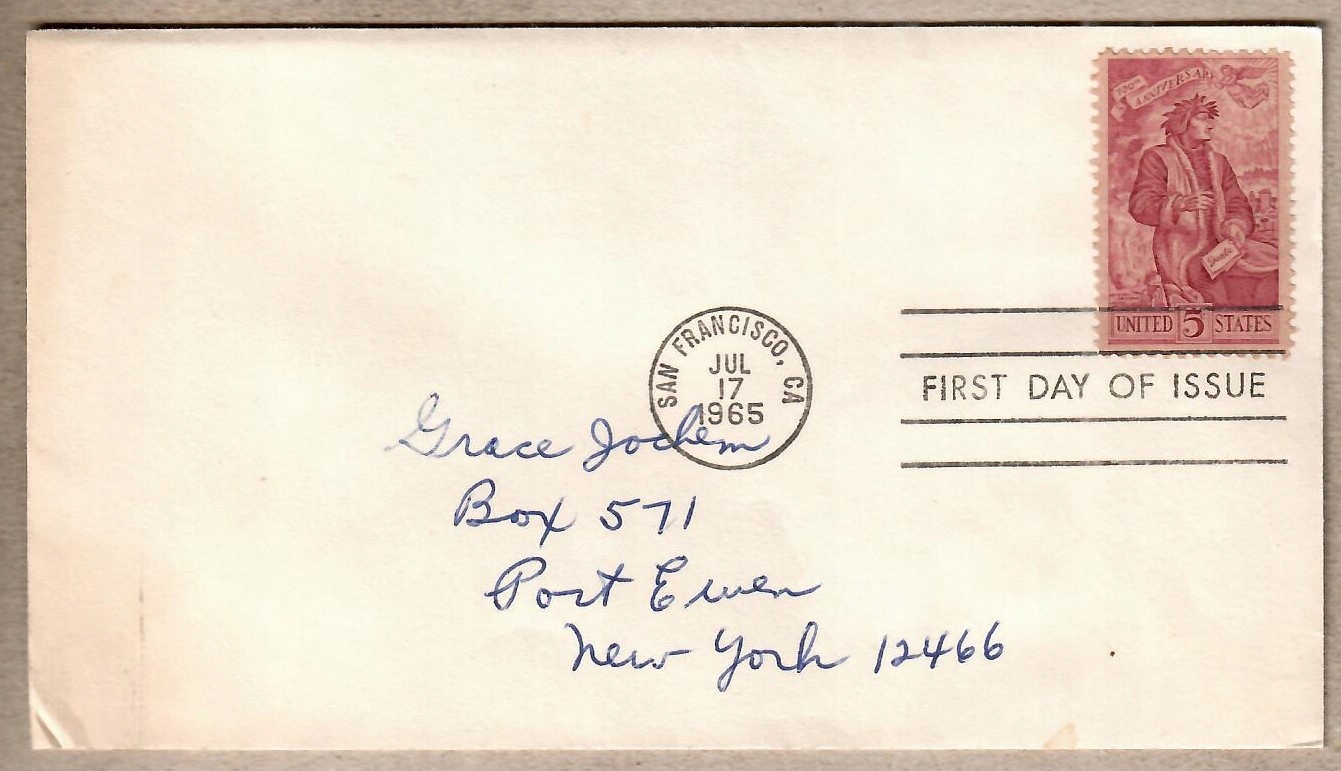 700TH ANNIVERSARY
Dante
UNITED 5¢ STATES
SAN FRANCISCO, CA
JUL
17
1965
FIRST DAY OF ISSUE
Grace Jochem
Box 571
Port Ewen
New York 12466